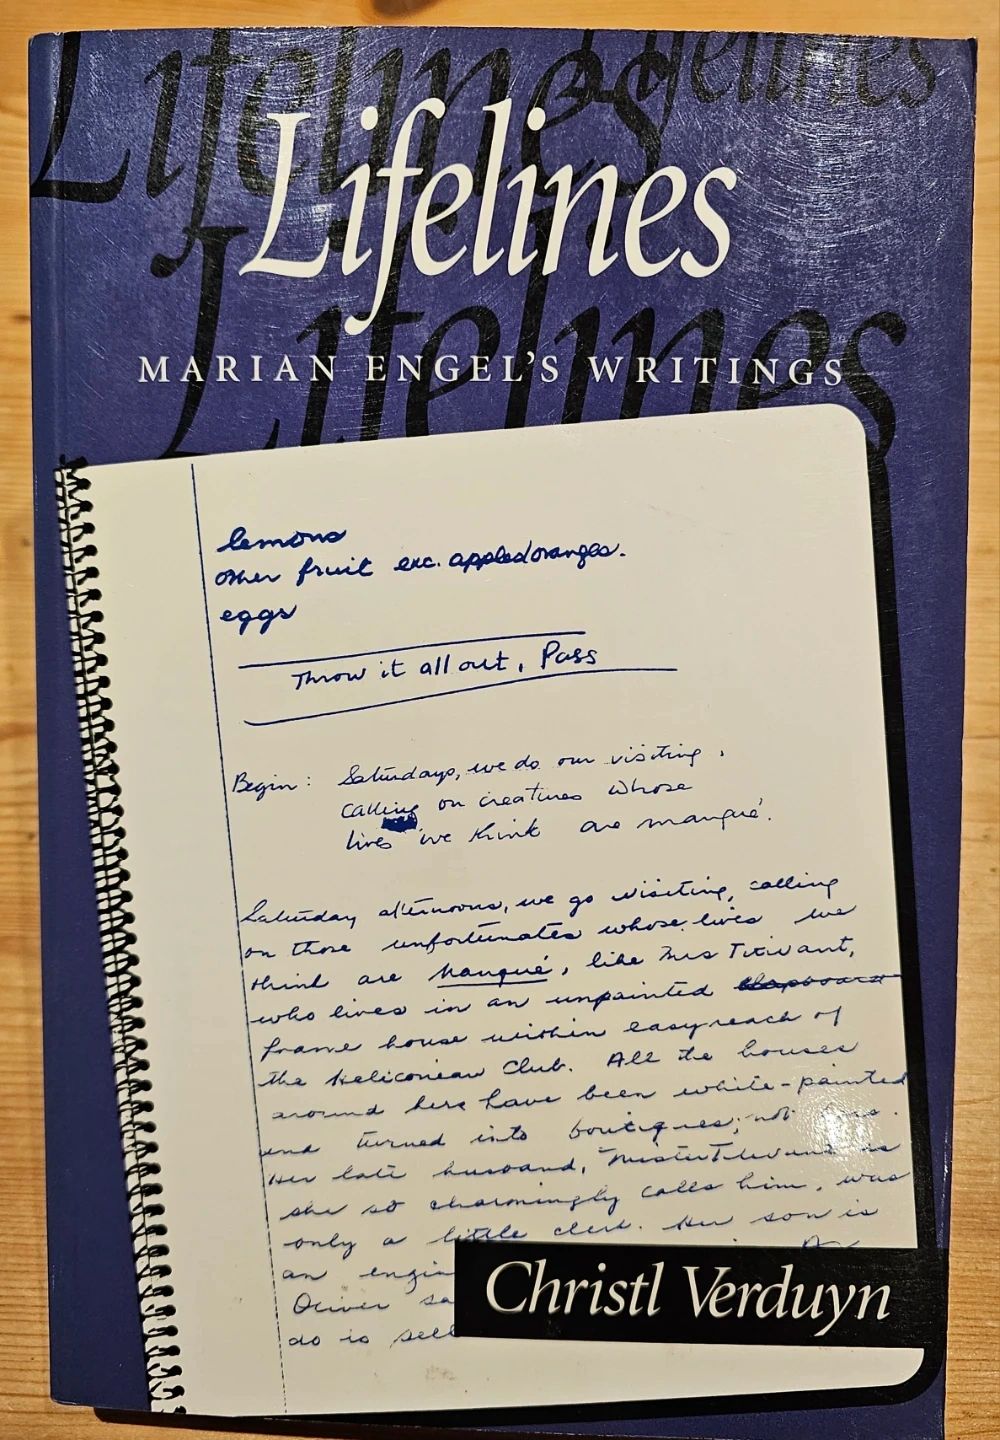 Lifelines
Lifelines
Lifelines
Lifelines
MARIAN ENGEL'S WRITINGS
lemons
other fruit exc. apples/oranges.
eggs
Throw it all out, Pass
Begin: Saturdays, we do our visiting,
calling on creatures whose
lives we think are manqué.
Saturday afternoons, we go visiting, calling
on those unfortunates whose lives we
think are manqué, like Mrs
who lives in an unpainted clapboard
frame house within easy reach of
the Heliconian Club. All the houses
around here have been white-painted
and turned into boutiques; not
Her late husband, "Mister is
she so charmingly calls him, was
only a little clerk. Her son is
an engi
Oliver sa
do is sell
Christl Verduyn